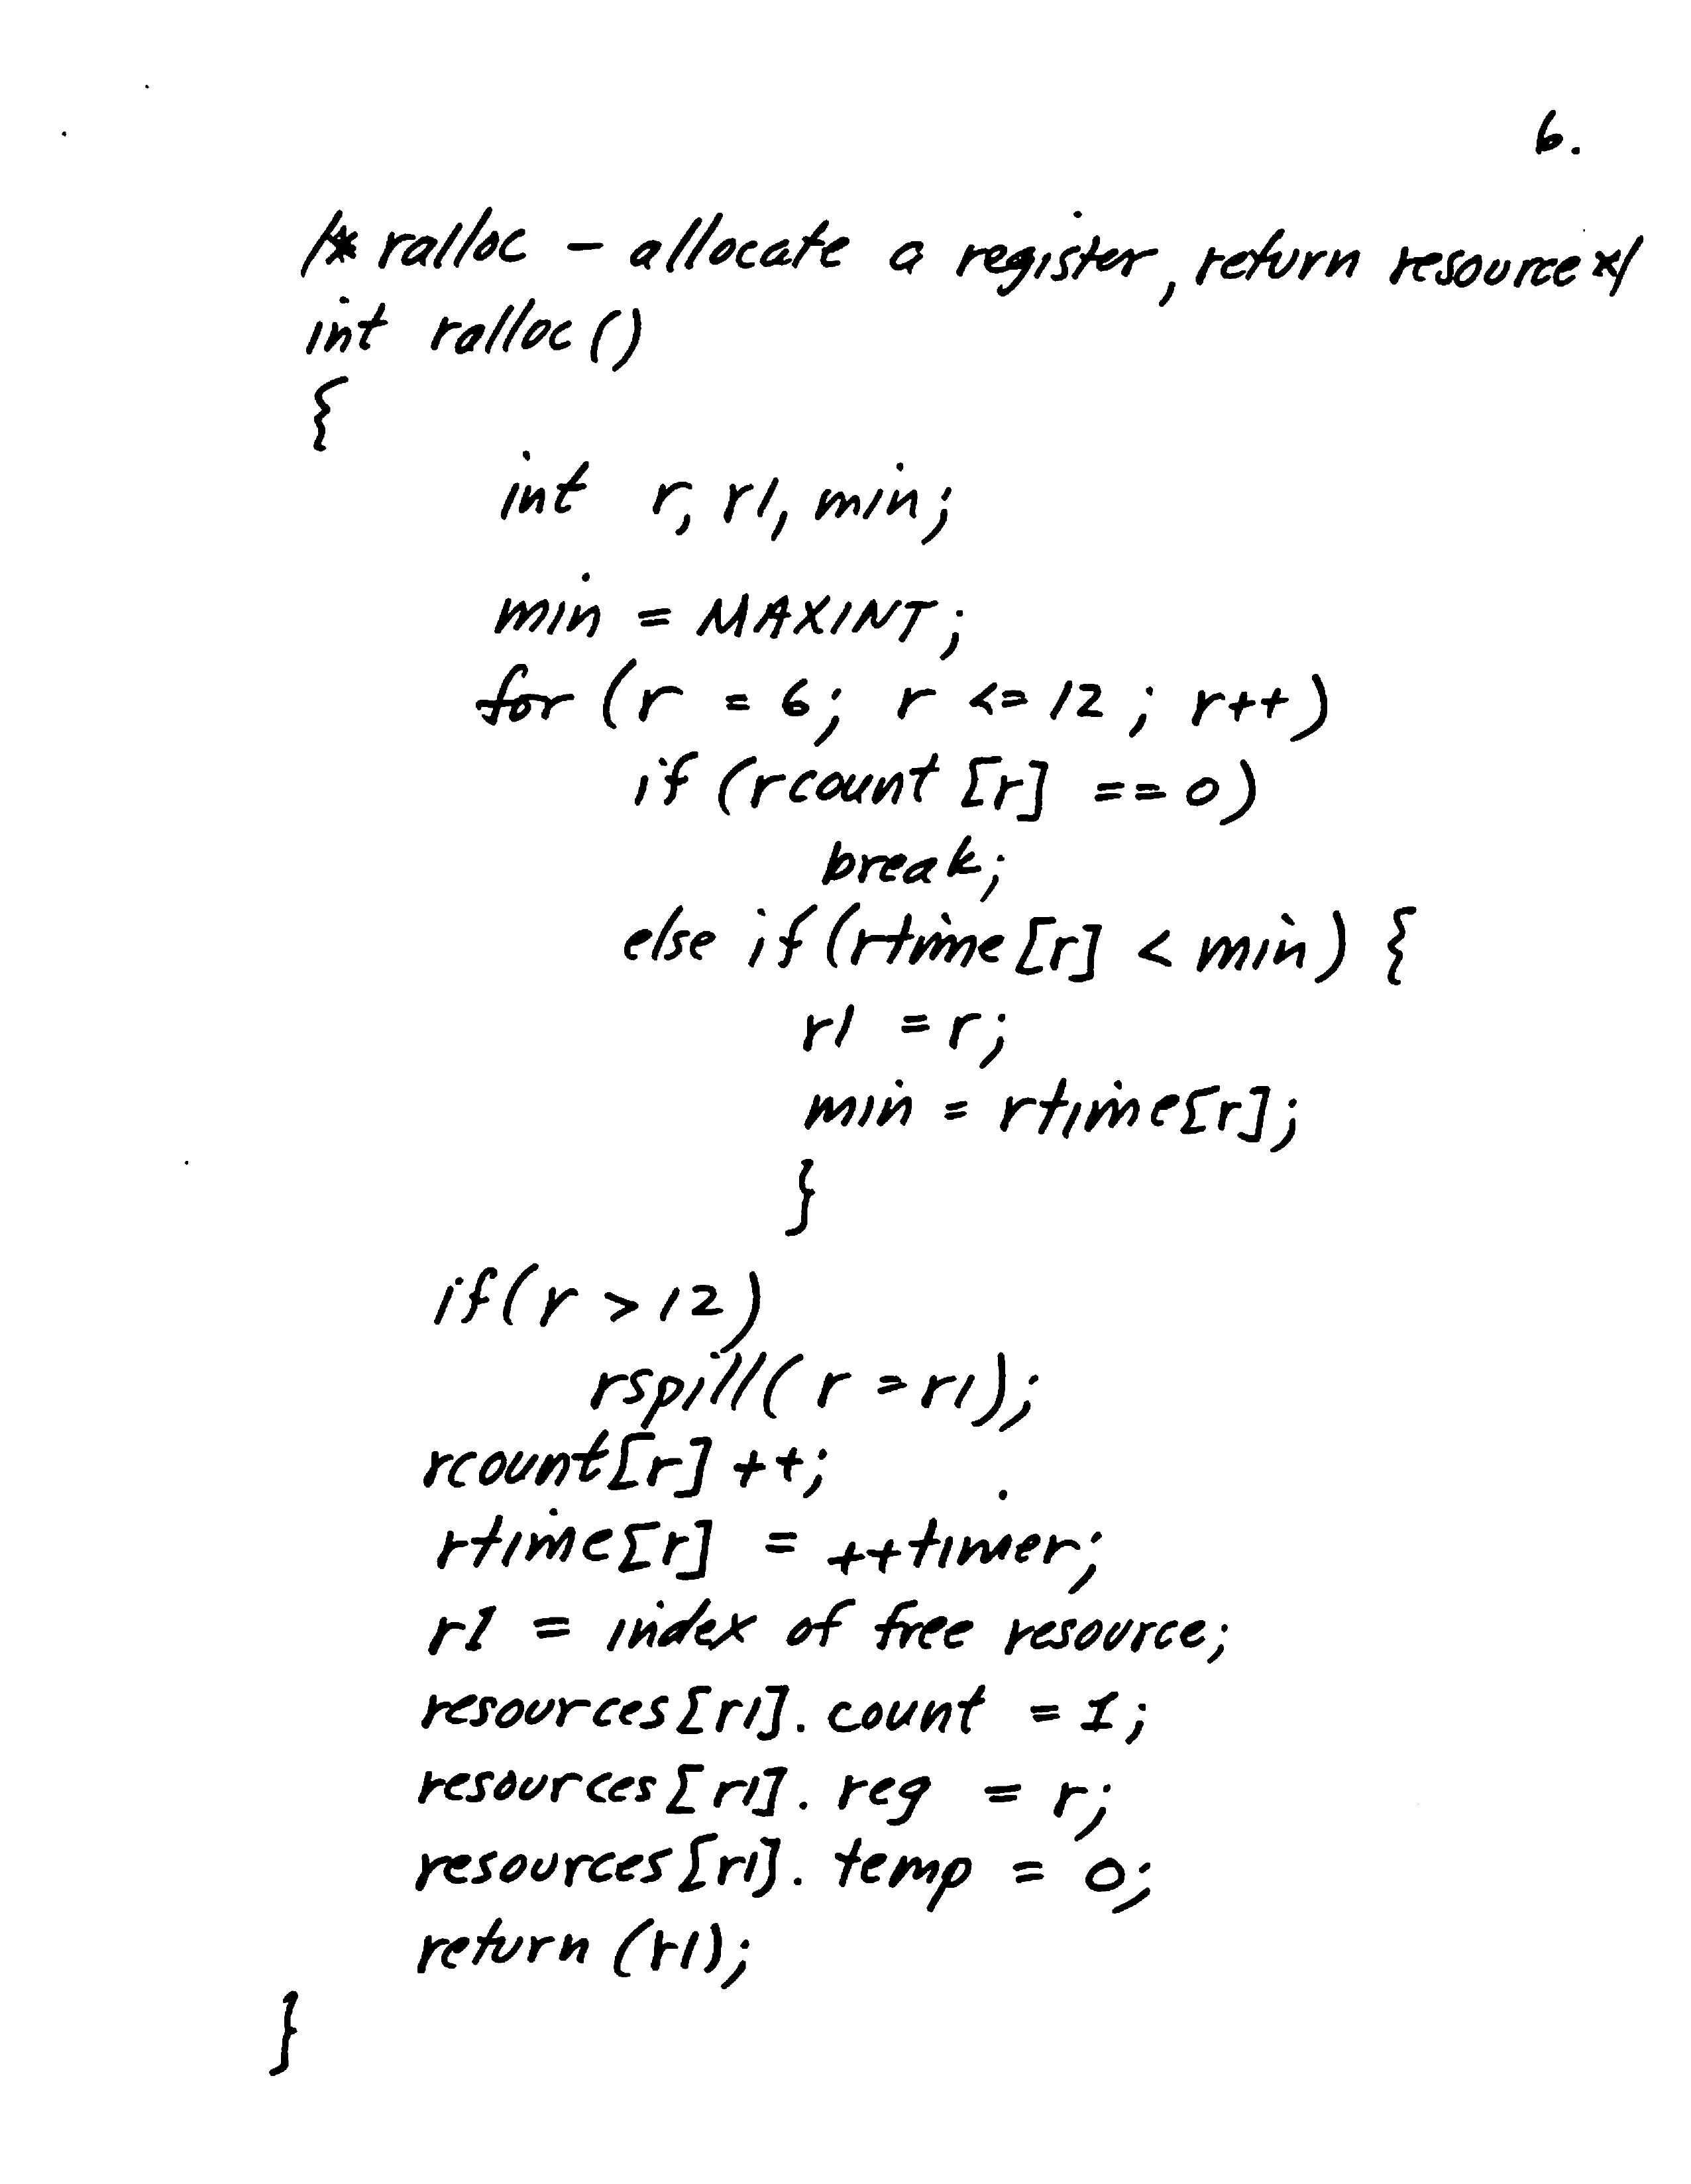 6.
/* ralloc – allocate a register, return resource */
int ralloc()
{
int r, r1, min;
min = MAXINT;
for (r = 6; r <= 12; r++)
if (rcount[r] == 0)
break;
else if (rtime[r] < min) {
r1 = r;
min = rtime[r];
}
if (r > 12)
rspill(r = r1);
rcount[r]++;
rtime[r] = ++timer;
r1 = index of free resource;
resources[r1].count = 1;
resources[r1].reg = r;
resources[r1].temp = 0;
return (r1);
}